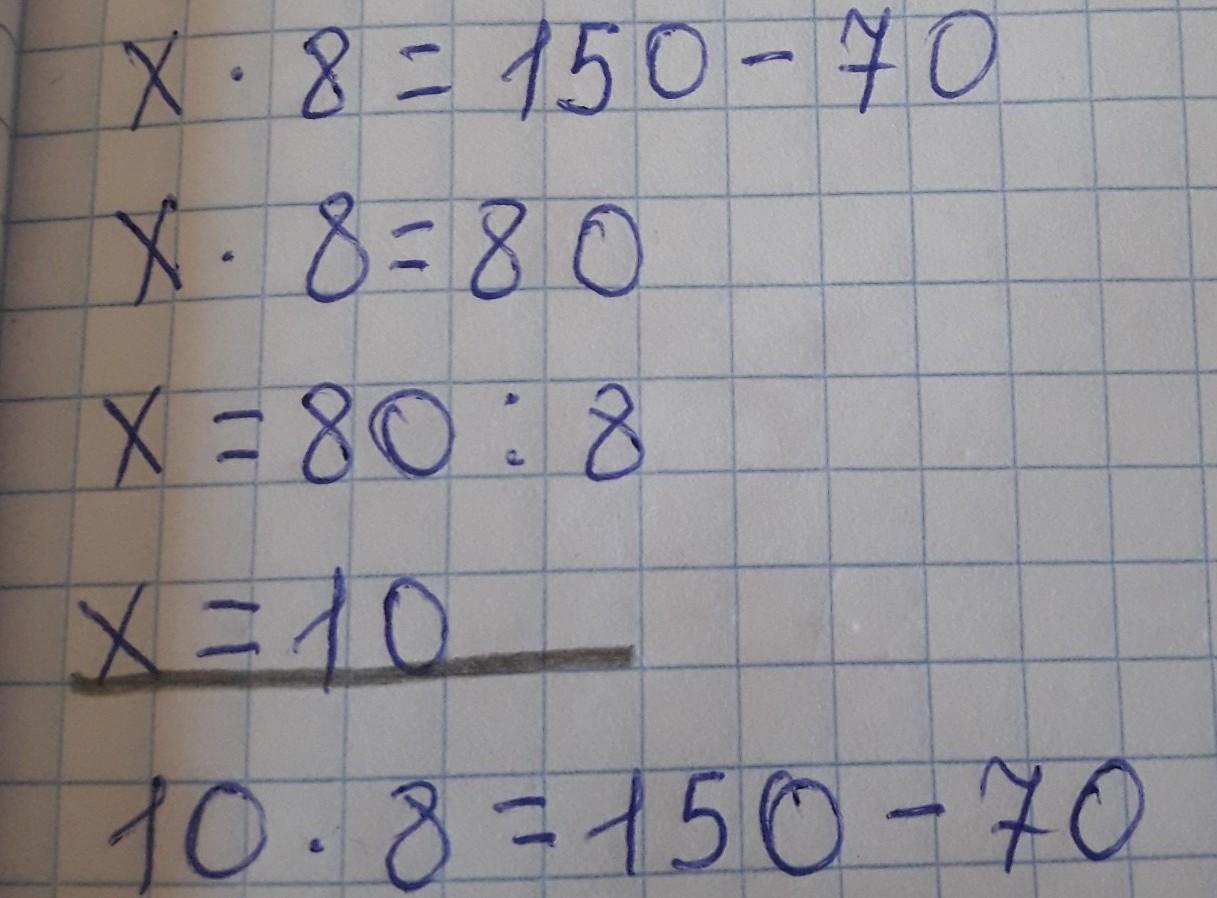 x · 8 = 150 - 70
x · 8 = 80
x = 80 : 8
x = 10
10 · 8 = 150 - 70